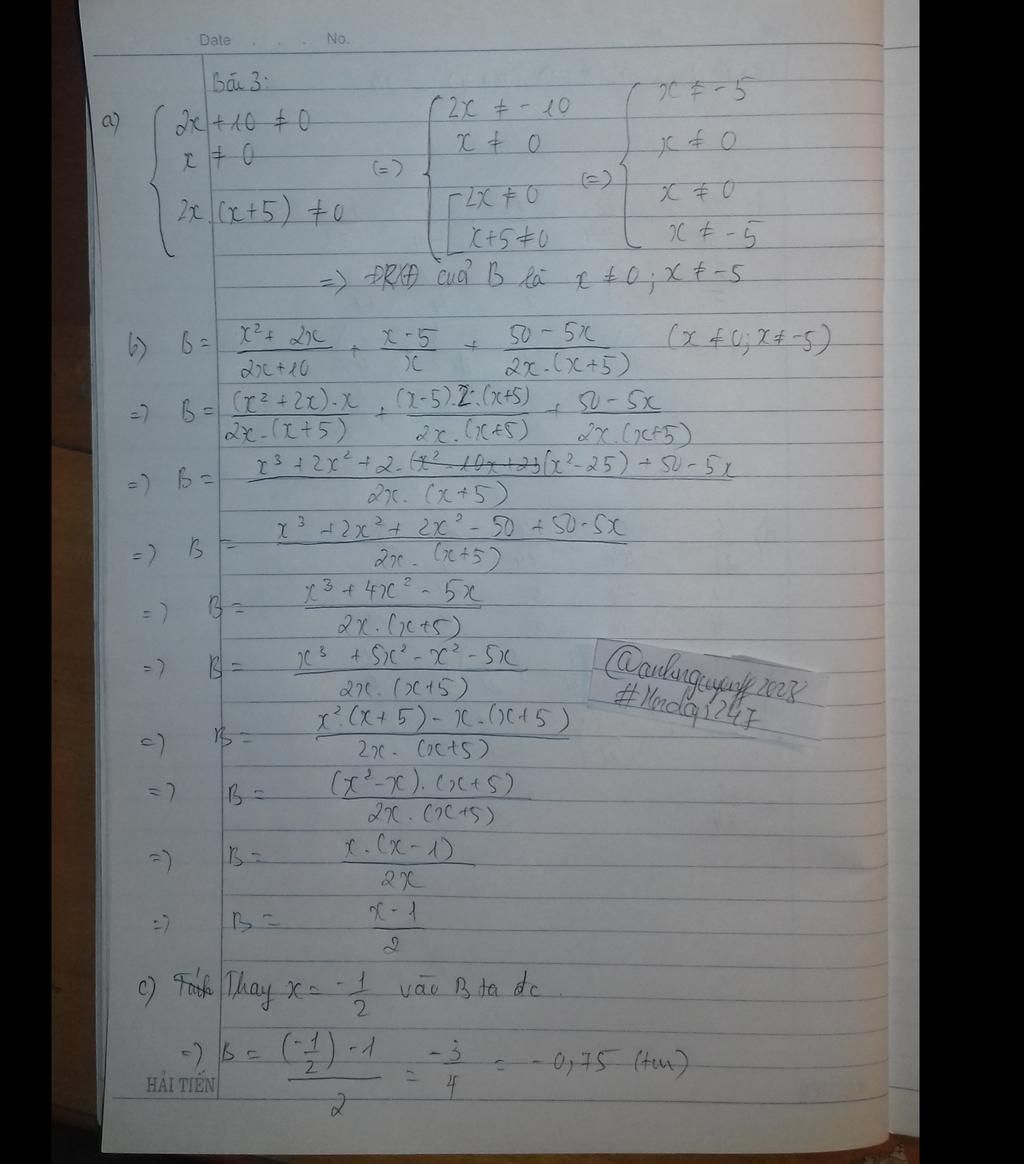 Date . . . No.
Bài 3:
a) { 2x + 10 ≠ 0 (=) { 2x ≠ -10 (=) { x ≠ -5
x ≠ 0 x ≠ 0 x ≠ 0
2x.(x+5) ≠ 0 [ 2x ≠ 0 x ≠ 0
x+5 ≠ 0 x ≠ -5
=) ĐKXĐ của B là x ≠ 0 ; x ≠ -5
b) B = (x² + 2x)/(2x+10) + (x-5)/x + (50-5x)/(2x.(x+5)) (x ≠ 0; x ≠ -5)
=) B = ((x²+2x).x)/(2x.(x+5)) + ((x-5).2.(x+5))/(2x.(x+5)) + (50-5x)/(2x.(x+5))
=) B = (x³ + 2x² + 2.(x²-25) + 50 - 5x)/(2x.(x+5))
=) B = (x³ + 2x² + 2x² - 50 + 50 - 5x)/(2x.(x+5))
=) B = (x³ + 4x² - 5x)/(2x.(x+5))
=) B = (x³ + 5x² - x² - 5x)/(2x.(x+5))
=) B = (x².(x+5) - x.(x+5))/(2x.(x+5))
=) B = ((x²-x).(x+5))/(2x.(x+5))
=) B = (x.(x-1))/(2x)
=) B = (x-1)/2
c) Thay x = -1/2 vào B ta đc
=) B = ((-1/2) - 1)/2 = -3/4 = -0,75 (tm)
HẢI TIẾN